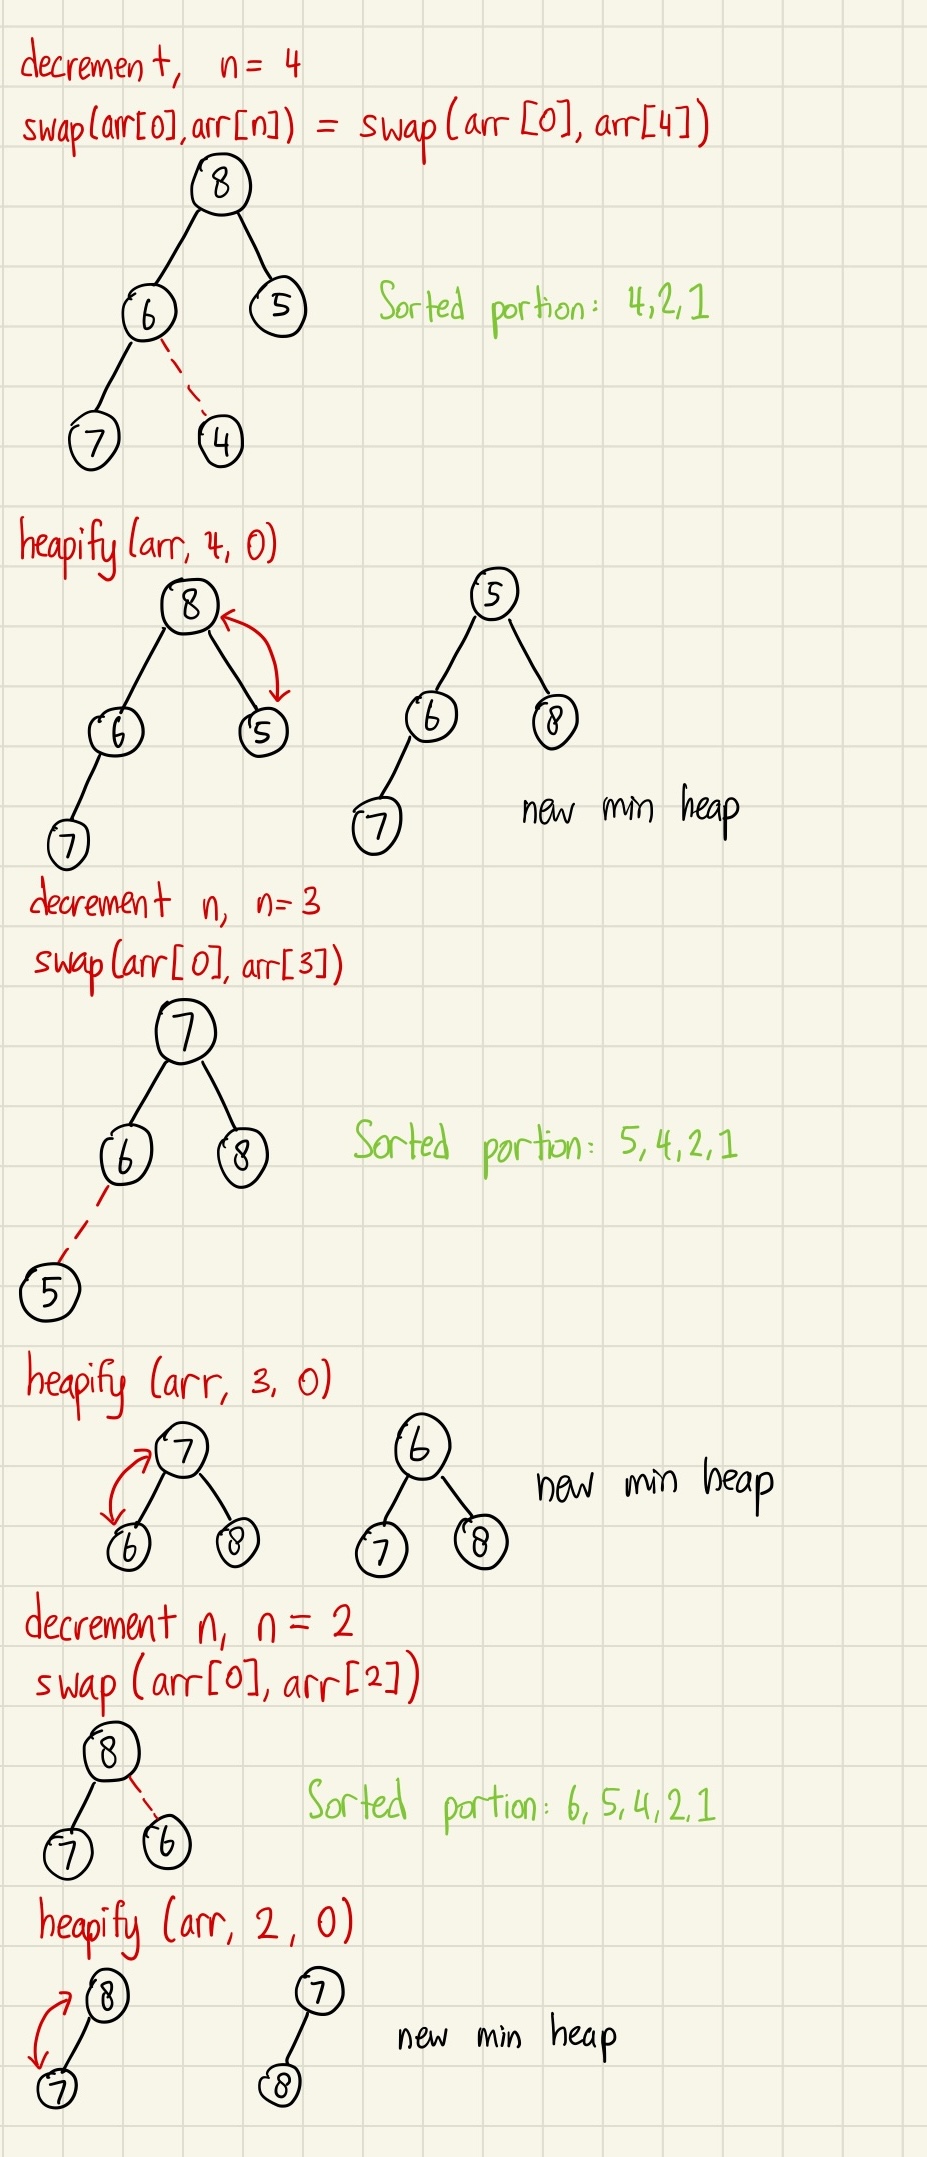 decrement, n = 4
swap(arr[0], arr[n]) = swap(arr[0], arr[4])
8
6 5
Sorted portion: 4,2,1
7 4
heapify(arr, 4, 0)
8 5
6 5 6 8
7 7
new min heap
decrement n, n=3
swap(arr[0], arr[3])
7
6 8
Sorted portion: 5,4,2,1
5
heapify (arr, 3, 0)
7 6
new min heap
6 8 7 8
decrement n, n = 2
swap (arr[0], arr[2])
8
Sorted portion: 6,5,4,2,1
7 6
heapify (arr, 2, 0)
8 7
new min heap
7 8